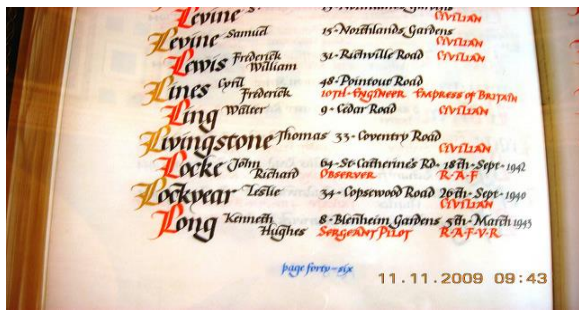 Levine
Levine Samuel 15-Northlands Gardens
CIVILIAN
Lewis Frederick William 31-Richville Road CIVILIAN
Lines Cyril Frederick 48-Pointout Road
10TH-ENGINEER EMPRESS OF BRITAIN
Ling Walter 9-Cedar Road CIVILIAN
Livingstone Thomas 33-Coventry Road
CIVILIAN
Locke John Richard 64-St-Catherine's Rd- 18th-Sept-1942
OBSERVER R-A-F
Lockyear Leslie 34-Copsewood Road 26th-Sept-1940
CIVILIAN
Long Kenneth Hughes 8-Blenheim Gardens 5th-March 1945
SERGEANT PILOT R-A-F-V-R
page forty-six
11.11.2009 09:43